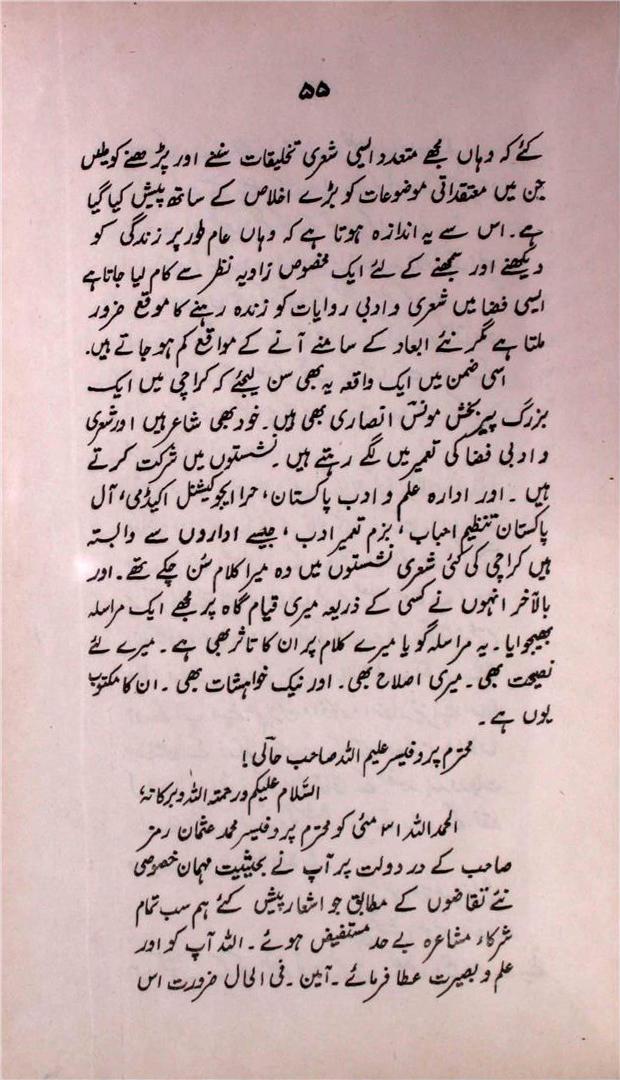 ۵۵
گئے کہ وہاں مجھے متعدد ایسی شعری تخلیقات سننے اور پڑھنے کو ملیں
جن میں معتقداتی موضوعات کو بڑے اخلاص کے ساتھ پیش کیا گیا
ہے۔ اس سے یہ اندازہ ہوتا ہے کہ وہاں عام طور پر زندگی کو
دیکھنے اور سمجھنے کے لئے ایک مخصوص زاویہ نظر سے کام لیا جاتا ہے
ایسی فضا میں شعری و ادبی روایات کو زندہ رہنے کا موقع ضرور
ملتا ہے مگر نئے ابعاد کے سامنے آنے کے مواقع کم ہو جاتے ہیں۔
اسی ضمن میں ایک واقعہ یہ بھی سن لیجئے کہ کراچی میں ایک
بزرگ پیر بخش مونسؔ انصاری بھی ہیں۔ خود بھی شاعر ہیں اور شعری
و ادبی فضا کی تعمیر میں لگے رہتے ہیں۔ نشستوں میں شرکت کرتے
ہیں۔ اور ادارہ علم و ادب پاکستان، حرا ایجوکیشنل اکیڈمی، آل
پاکستان تنظیم احباب، بزم تعمیر ادب، جیسے اداروں سے وابستہ
ہیں کراچی کی کئی شعری نشستوں میں وہ میرا کلام سُن چکے تھے۔ اور
بالآخر انہوں نے کسی کے ذریعہ میری قیام گاہ پر مجھے ایک مراسلہ
بھیجوایا۔ یہ مراسلہ گویا میرے کلام پر ان کا تاثر بھی ہے۔ میرے لئے
نصیحت بھی۔ میری اصلاح بھی۔ اور نیک خواہشات بھی۔ ان کا مکتوب
یوں ہے۔
محترم پروفیسر علیم اللہ صاحب حالیؔ!
السَّلام علیکم ورحمتہ اللہ وبرکاتہٗ
الحمد اللہ ۳۱ مئی کو محترم پروفیسر محمد عثمان رمز
صاحب کے در دولت پر آپ نے بحیثیت مہمان خصوصی
نئے تقاضوں کے مطابق جو اشعار پیش کئے ہم سب تمام
شرکاء مشاعرہ بے حد مستفیض ہوئے۔ اللہ آپ کو اور
علم و بصیرت عطا فرمائے۔ آمین۔ فی الحال ضرورت اس